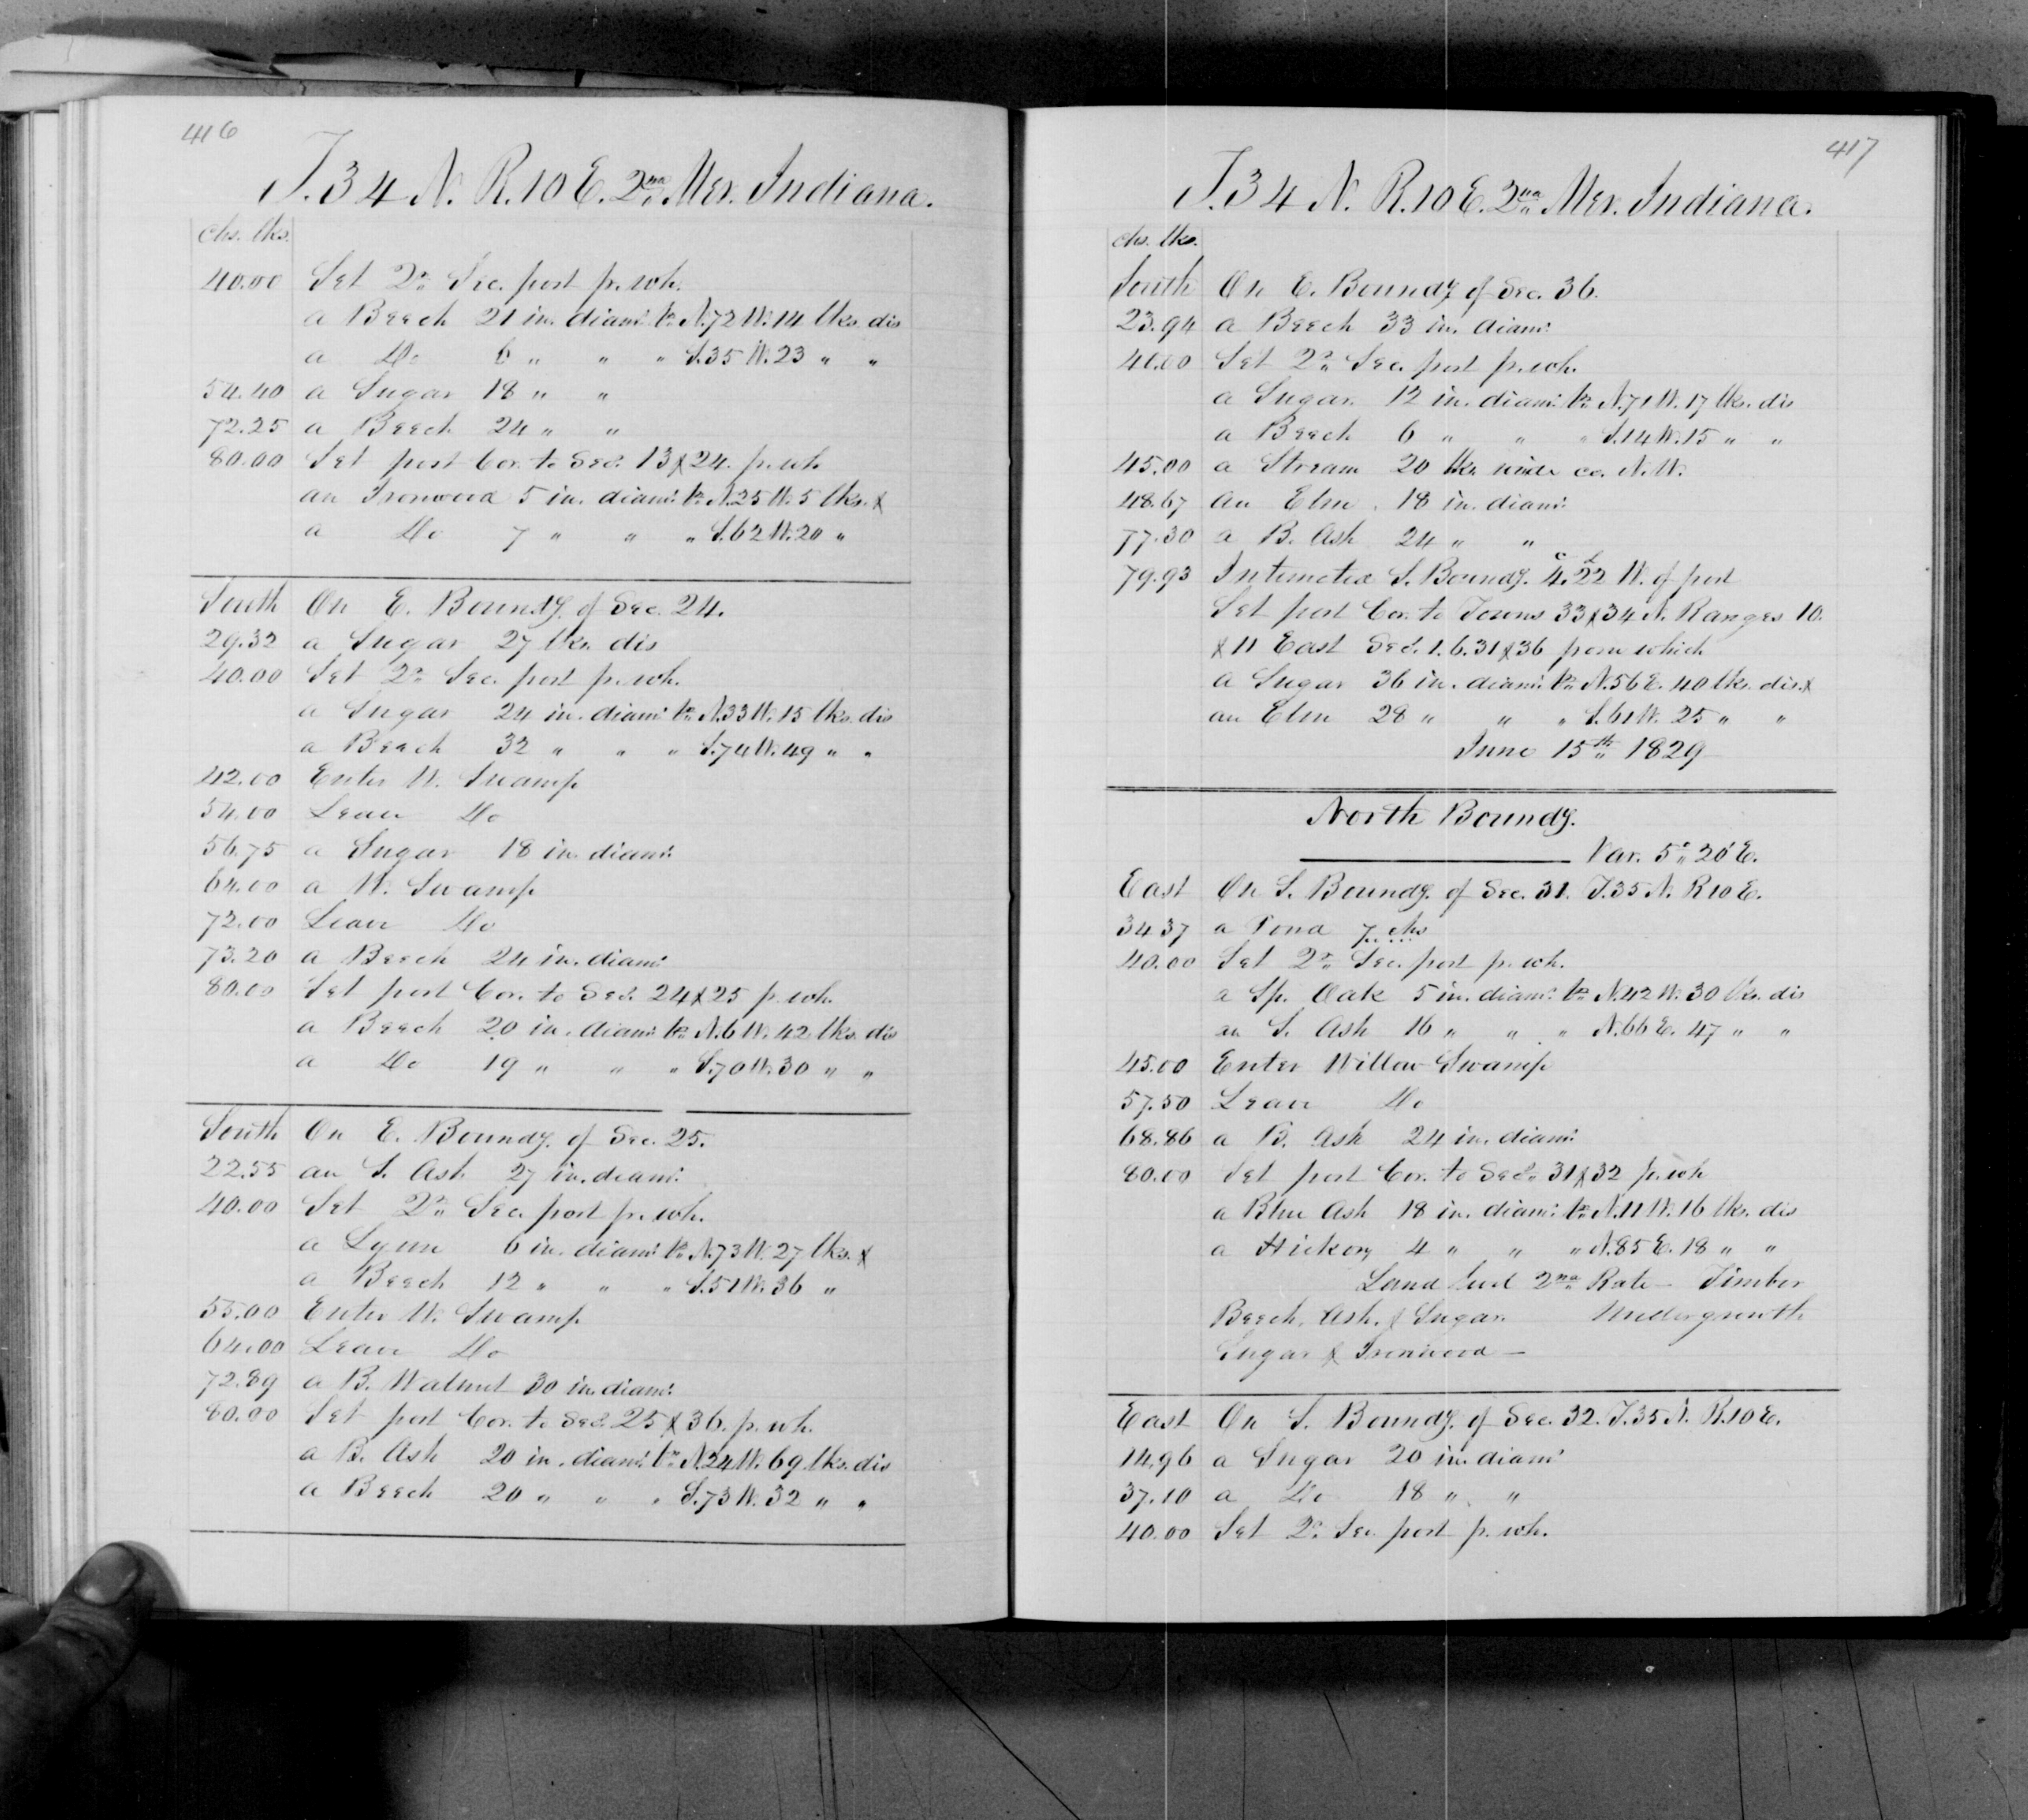 416
T. 34 N. R. 10 E. 2nd Mer. Indiana.
chs. lks.
40.00 Set 2r. Sec. post fr. wh.
a Beech 21 in. diam. br. N. 72 W. 14 lks. dis
a Do 6 " " " S. 35 W. 23 " "
54.40 a Sugar 18 " "
72.25 a Beech 24 " "
80.00 Set post Cor. to Secs. 13 & 24. fr. wh
an Ironwood 5 in. diam. br. N. 25 W. 5 lks. &
a Do 7 " " " S. 62 W. 20 "
South On E. Boundy. of Sec. 24.
29.32 a Sugar 27 lks. dis
40.00 Set 2r. Sec. post fr. wh.
a Sugar 24 in. diam. br. N. 33 W. 15 lks. dis
a Beech 32 " " " S. 74 W. 49 " "
42.00 Enter W. Swamp
54.00 Leave Do
56.75 a Sugar 18 in. diam.
64.00 a W. Swamp
72.00 Leave Do
73.20 a Beech 24 in. diam.
80.00 Set post Cor. to Secs. 24 & 25 fr. wh.
a Beech 20 in. diam. br. N. 6 W. 42 lks. dis
a Do 19 " " " S. 70 W. 30 " "
South On E. Boundy. of Sec. 25.
22.55 an S. Ash 27 in. diam.
40.00 Set 2r. Sec. post fr. wh.
a Lynn 6 in. diam. br. N. 73 W. 27 lks. &
a Beech 12 " " " S. 51 W. 36 "
55.00 Enter W. Swamp
64.00 Leave Do
72.89 a B. Walnut 30 in. diam.
80.00 Set post Cor. to Secs. 25 & 36. fr. wh.
a B. Ash 20 in. diam. br. N. 24 W. 69 lks. dis
a Beech 20 " " " S. 73 W. 32 " "
417
T. 34 N. R. 10 E. 2nd Mer. Indiana.
chs. lks.
South On E. Boundy of Sec. 36.
23.94 a Beech 33 in. diam.
40.00 Set 2r. Sec. post fr. wh.
a Sugar 12 in. diam. br. N. 71 W. 17 lks. dis
a Beech 6 " " " S. 14 W. 15 " "
45.00 a Stream 20 lks. wide co. N. W.
48.67 an Elm 18 in. diam.
77.30 a B. Ash 24 " "
79.93 Intersected S. Boundy. 4c. 22l W. of post
Set post Cor. to Towns 33 & 34 N. Ranges 10.
& 11 East Secs. 1. 6. 31 & 36 from which
a Sugar 36 in. diam. br. N. 56 E. 40 lks. dis. &
an Elm 28 " " " S. 61 W. 25 " "
June 15th 1829
North Boundy.
Var. 5° 20' E.
East On S. Boundy. of Sec. 31. T. 35 N. R 10 E.
34 37 a Pond 7 chs
40.00 Set 2r. Sec. post fr. wh.
a Sp. Oak 5 in. diam. br. N. 42 W. 30 lks. dis
an S. Ash 16 " " " N. 66 E. 47 " "
45.00 Enter Willow Swamp
57.50 Leave Do
68.86 a B. Ash 24 in. diam.
80.00 Set post Cor. to Secs. 31 & 32 fr. wh
a Blue Ash 18 in. diam. br. N. 11 W. 16 lks. dis
a Hickory 4 " " " N. 85 E. 18 " "
Land 2nd Rate — Timber
Beech, Ash, & Sugar. Undergrowth
Sugar & Ironwood —
East On S. Boundy. of Sec. 32. T. 35 N. R. 10 E.
14.96 a Sugar 20 in. diam.
37.10 a Do 18 " "
40.00 Set 2r. Sec. post fr. wh.